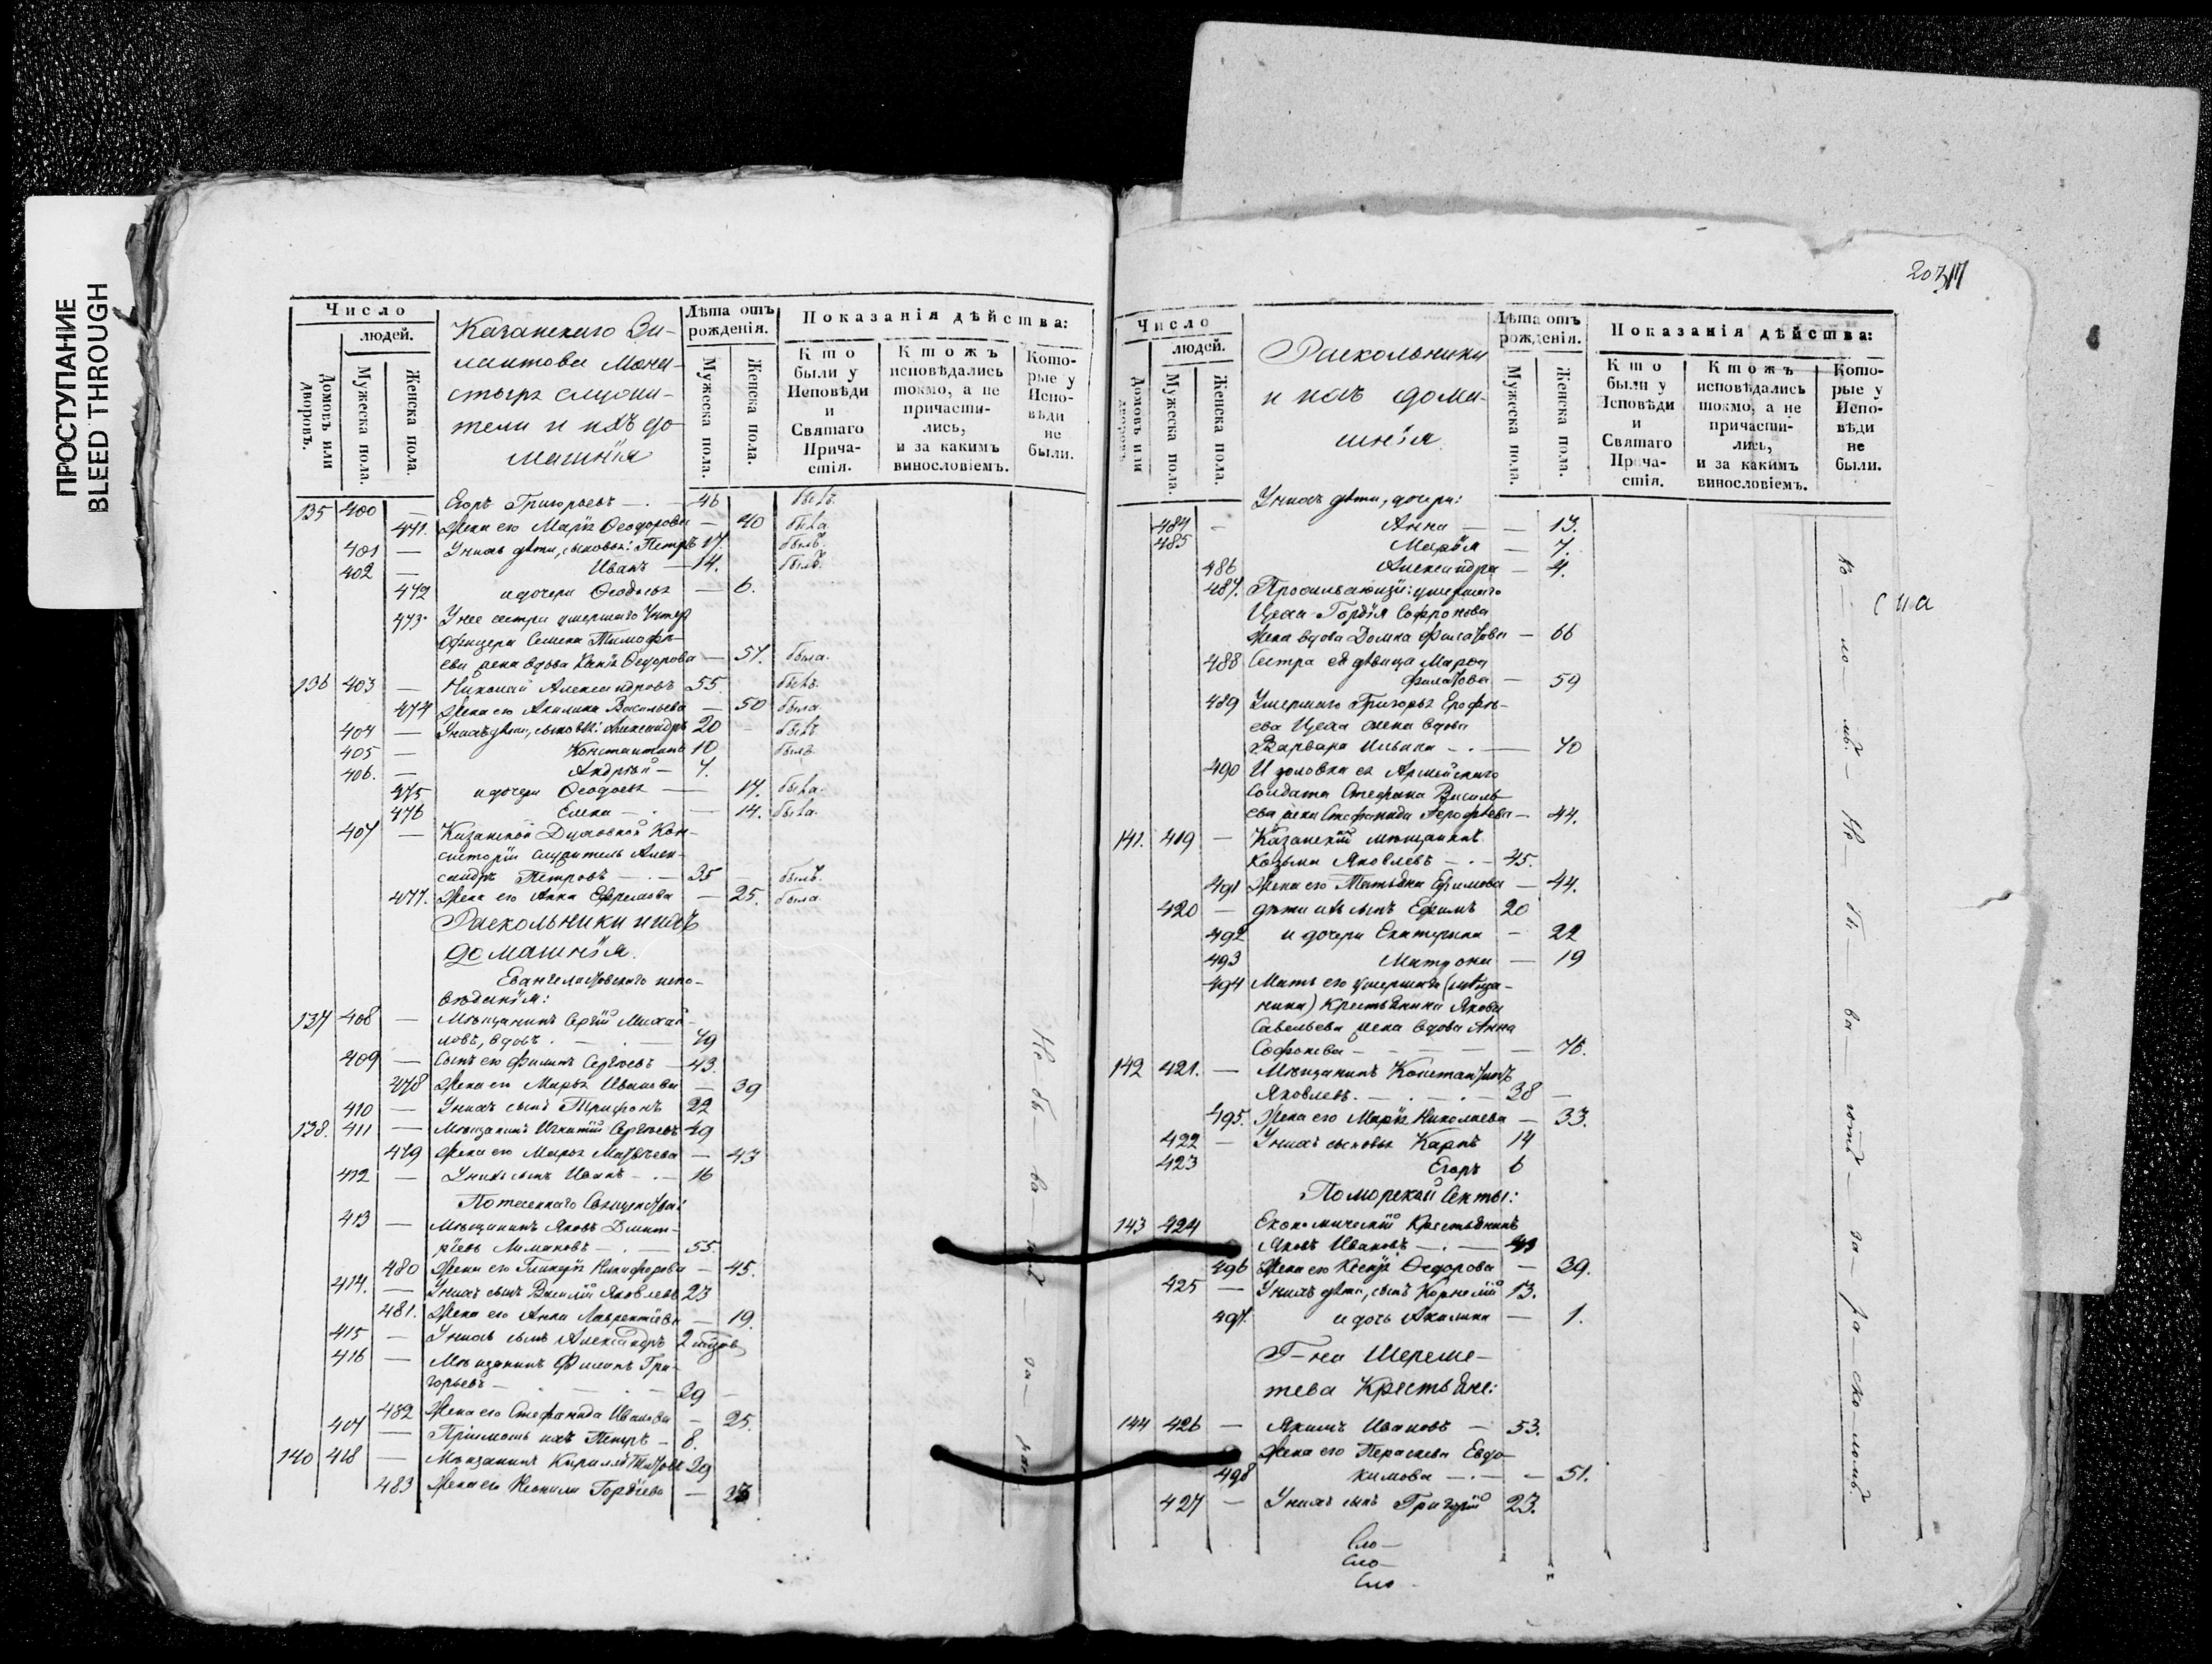 ПРОСТУПАНИЕ
BLEED THROUGH
Число
людей.
Домовъ или дворовъ.
Мужеска пола.
Женска пола.
Казанскаго Зи-
лантова Мона-
стыря служи-
тели и ихъ до
машнія
Лѣта отъ рожденія.
Мужеска пола.
Женска пола.
Показанія дѣйства:
Кто были у Исповѣди и Святаго Прича-стія.
Ктожъ исповѣдались токмо, а не причасти-лись, и за какимъ винословіемъ.
Кото-рые у Испо-вѣди не были.
135 400 — Егоръ Григорьевъ — 46 былъ.
471. Жена его Марія Ѳеодорова — 40 была
401 — У нихъ дѣти, сыновья: Петръ 17 былъ.
402 — Иванъ — 14. былъ.
472 и дочери Ѳеодосья — 6.
473. У нее сестра умершаго Унтер
Офицера Семена Тимофѣ-
ева жена вдова Ѳедорова — 57. была.
136 403 — Николай Александровъ 55. былъ.
474 Жена его Акилина Васильева — 50 была
404 — У нихъ дѣти, сыновья: Александръ 20 — былъ
405 — Константинъ 10 былъ
406. — Андрей — 7.
475 и дочери Ѳеодосья — 17. была.
476 Елена — 14. была.
407 — Казанской Духовной Кон-
систоріи служитель Алек-
сандръ Петровъ — 35 — былъ.
477. Жена его Анна Ефремова — 25. была
Раскольники и ихъ
домашнія.
Евангелистовскаго испо-
вѣданія:
137 408 — Мѣщанинъ Сергій Михай-
ловъ, вдовъ. — 79
409 — Сынъ его Филипъ Сергѣевъ — 43.
478 Жена его Марья Иванова — 39
410 — У нихъ сынъ Трифонъ 22
138. 411 — Мѣщанинъ Игнатій Сергѣевъ 49
479 Жена его Марья Матвѣева — 43
412 — У нихъ сынъ Иванъ — 16
413 — Мѣщанинъ Яковъ Дмит-
ріевъ Лимановъ — 55.
480 Жена его Гликерія Никифорова — 45.
414. — У нихъ сынъ Василій Яковлевъ 23
481. Жена его Анна Лаврентіева — 19.
415 — У нихъ сынъ Александръ 2
416 — Мѣщанинъ Филипъ Гри-
горьевъ — 29 —
482 Жена его Стефанида Иванова — 25.
417 — Пріимышъ ихъ Петръ — 8.
140 418 — Мѣщанинъ Кирилъ Титовъ 29
483 Жена его Неонила Гордѣева —
Не бы ва
20317
Число
людей.
Домовъ или дворовъ.
Мужеска пола.
Женска пола.
Раскольники
и ихъ дома-
шнія
Лѣта отъ рожденія.
Мужеска пола.
Женска пола.
Показанія дѣйства:
Кто были у Исповѣди и Святаго Прича-стія.
Ктожъ исповѣдались токмо, а не причасти-лись, и за какимъ винословіемъ.
Кото-рые у Испо-вѣди не были.
У нихъ дѣти, дочери:
484 — Анна — — 13.
485 Марія — 7.
486 Александра — 4.
487. умершаго
Цеха Гордія Софронова
жена вдова Домна Филатова — 66
488 Сестра ея дѣвица Марфа
Филатова — 59
489 Умершаго Григорья Ерофѣ-
ева Цеха жена вдова
Варвара Ильина — 70
490 И золовка ея Армейскаго
солдата Стефана Василь-
ева жена Стефанида Ерофѣева — 44.
141. 419 — Казанскій мѣщанинъ
Козьма Яковлевъ — 45.
491 Жена его Татьяна Ефимова — 44.
420 — дѣти ихъ сынъ Ефимъ 20
492 и дочери Екатерина — 22
493 Матрона — 19
494 Мать его умершаго (мѣща-
нина) Крестьянина Якова
Савельева жена вдова Анна
— 76.
142 421. — Мѣщанинъ Константинъ
Яковлевъ. — 38 —
495. Жена его Марія Николаева — 33.
422 — У нихъ сыновья Карпъ 14
423 Егоръ 6
Поморской Секты:
143 424 Економическій Крестьянинъ
Яковъ Ивановъ —
496 Жена его Ксенія Ѳедорова — 39.
425 — У нихъ дѣти, сынъ Корнилій 13.
497. и дочь Акилина — 1.
Г-на Шереме-
тева Крестьяне:
144 426 — Якимъ Ивановъ — 53.
Жена его Параскева Евдо-
498 кимова — 51.
427 — У нихъ сынъ Григорій 23.
Сло—
Сло—
Сло
Не — бы — ва — за ра ско ломъ.